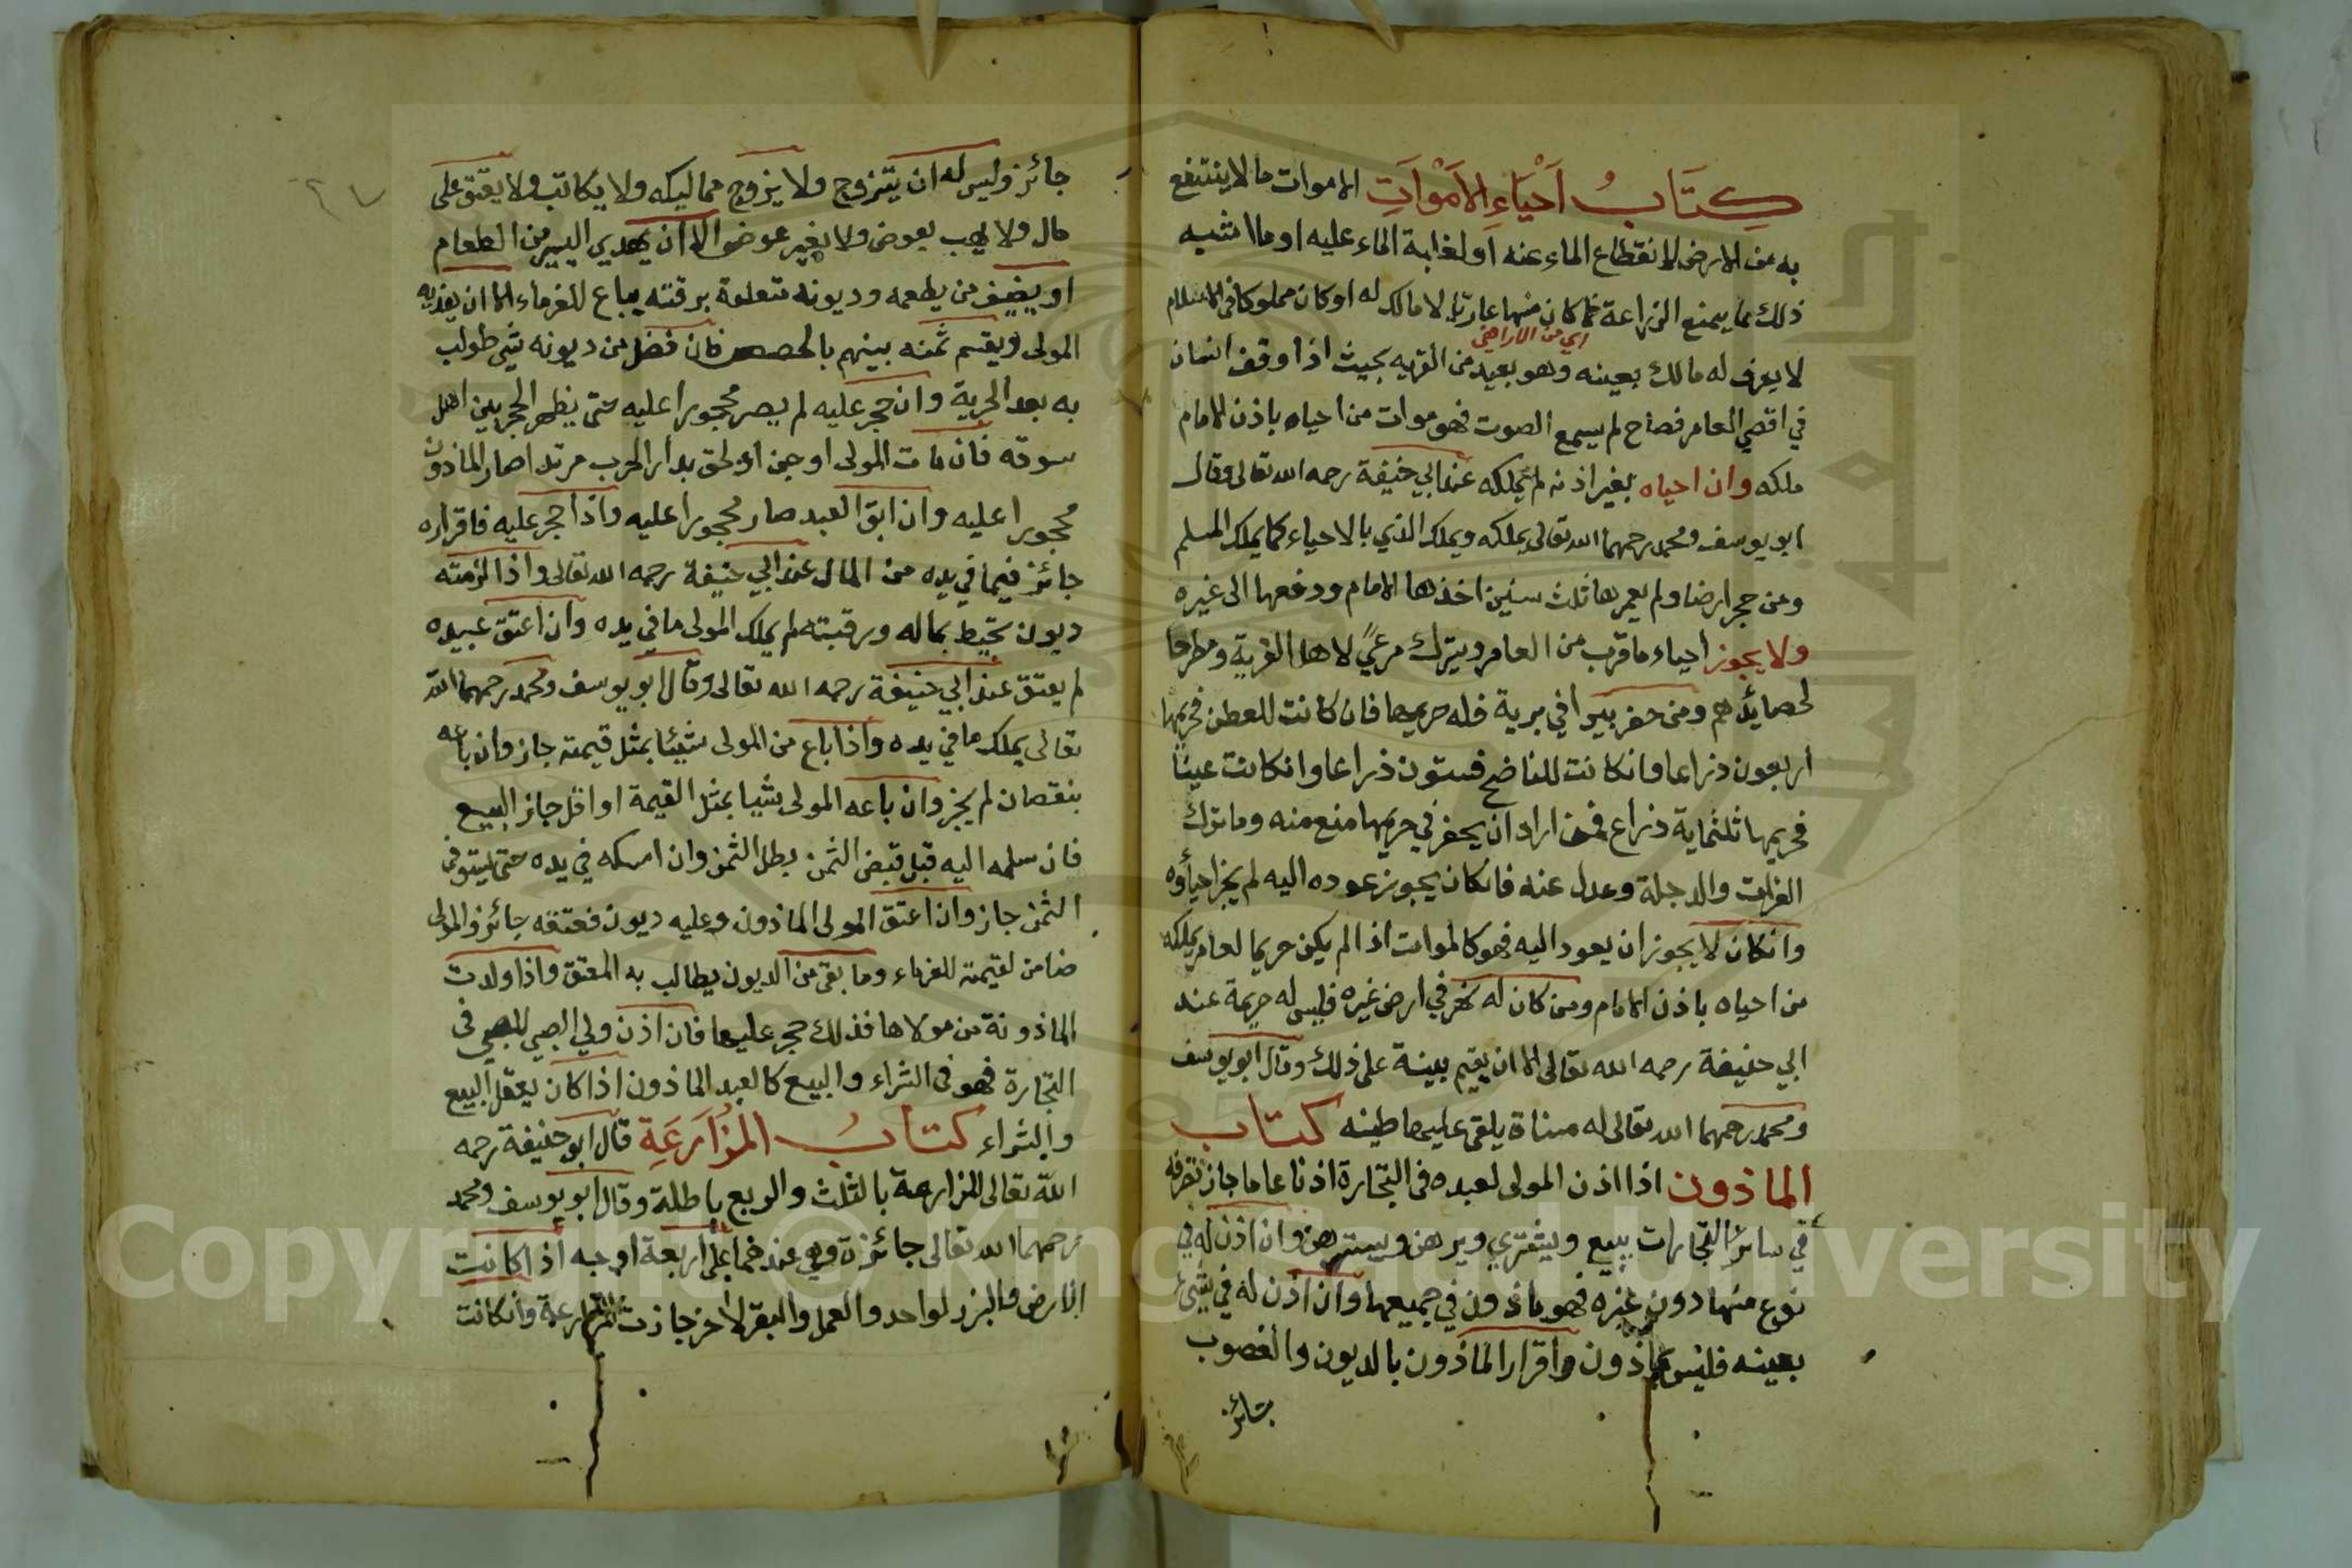 كِتَابُ اَحْيَاءِ الاَمْوَاتِ الاموات ما لا ينتفع
به من الارض لانقطاع الماء عنه او لغلبة الماء عليه او ما اشبه
ذلك مما يمنع الزراعة فما كان منها عاديا لا مالك له او كان مملوكا في الاسلام
اي من الاراضي
لا يعرف له مالك بعينه وهو بعيد من القريه بحيث اذا وقف انسان
في اقصي العامر فصاح لم يسمع الصوت فهو موات من احياه باذن الامام
ملكه وان احياه بغير اذنه لم يملكه عند ابي حنيفة رحمه الله تعالى وقال
ابو يوسف ومحمد رحمهما الله تعالى يملكه ويملك الذمي بالاحياء كما يملك المسلم
ومن حجر ارضا ولم يعمرها ثلث سنين اخذها الامام ودفعها الى غيره
ولا يجوز احياء ما قرب من العامر ويترك مرعىً لاهل القرية ومطرحا
لحصائدهم ومن حفر بيرا في برية فله حريمها فان كانت للعطن فحريمها
اربعون ذراعا وانكانت للناضح فستون ذراعا وانكانت عينا
فحريمها ثلثماية ذراع فمن اراد ان يحفر في حريمها منع منه وما ترك
الفرات والدجلة وعدل عنه فانكان يجوز عوده اليه لم يجز احياؤه
وانكان لا يجوز ان يعود اليه فهو كالموات اذا لم يكن حريما لعامر يملكه
من احياه باذن الامام ومن كان له نهر في ارض غيره فليس له حريمة عند
ابي حنيفة رحمه الله تعالى الا ان يقيم بينة على ذلك وقال ابو يوسف
ومحمد رحمهما الله تعالى له مسناة يلقى عليها طينه كتاب
الماذون اذا اذن المولى لعبده في التجارة اذنا عاما جاز تصرفه
في سائر التجارات يبيع ويشتري ويرهن ويسترهن وان اذن له في
نوع منها دون غيره فهو ماذون في جميعها وان اذن له في شيء
بعينه فليس بماذون واقرار الماذون بالديون والغصوب
جائز
جائز وليس له ان يتزوج ولا يزوج مماليكه ولا يكاتب ولا يعتق على
مال ولا يهب بعوض ولا بغير عوض الا ان يهدي اليسير من الطعام
او يضيف من يطعمه وديونه متعلقة برقبته يباع للغرماء الا ان يفديه
المولى ويقسم ثمنه بينهم بالحصص فان فضل من ديونه شي طولب
به بعد الحرية وان حجر عليه لم يصر محجورا عليه حتى يظهر الحجر بين اهل
سوقه فان مات المولى او جن او لحق بدار الحرب مرتدا صار الماذون
محجورا عليه وان ابق العبد صار محجورا عليه واذا حجر عليه فاقراره
جائز فيما في يده من المال عند ابي حنيفة رحمه الله تعالى واذا لزمته
ديون تحيط بماله ورقبته لم يملك المولى ما في يده وان اعتق عبيده
لم يعتق عند ابي حنيفة رحمه الله تعالى وقال ابو يوسف ومحمد رحمهما الله
تعالى يملك ما في يده واذا باع من المولى شيئا بمثل قيمته جاز وان باعه
بنقصان لم يجز وان باعه المولى شيا بمثل القيمة او اقل جاز البيع
فان سلمه اليه قبل قبض الثمن بطل الثمن وان امسكه في يده حتى يستوفى
الثمن جاز وان اعتق المولى الماذون وعليه ديون فعتقه جائز والمولى
ضامن لقيمته للغرماء وما بقى من الديون يطالب به المعتق واذا ولدت
الماذونة من مولاها فذلك حجر عليها فان اذن ولي الصبي للصبي فى
التجارة فهو فى الشراء والبيع كالعبد الماذون اذا كان يعقل البيع
والشراء كتابُ المُزَارَعَةِ قال ابو حنيفة رحمه
الله تعالى المزارعة بالثلث والربع باطلة وقال ابو يوسف ومحمد
رحمهما الله تعالى جائزة وهى عندهما على اربعة اوجه اذا كانت
الارض والبزر لواحد والعمل والبقر لاخر جازت المزارعة وانكانت
Copyright © King Saud University